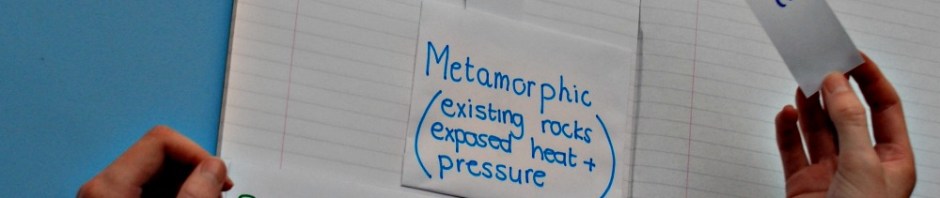 Metamorphic
(existing rocks
exposed heat +
pressure)